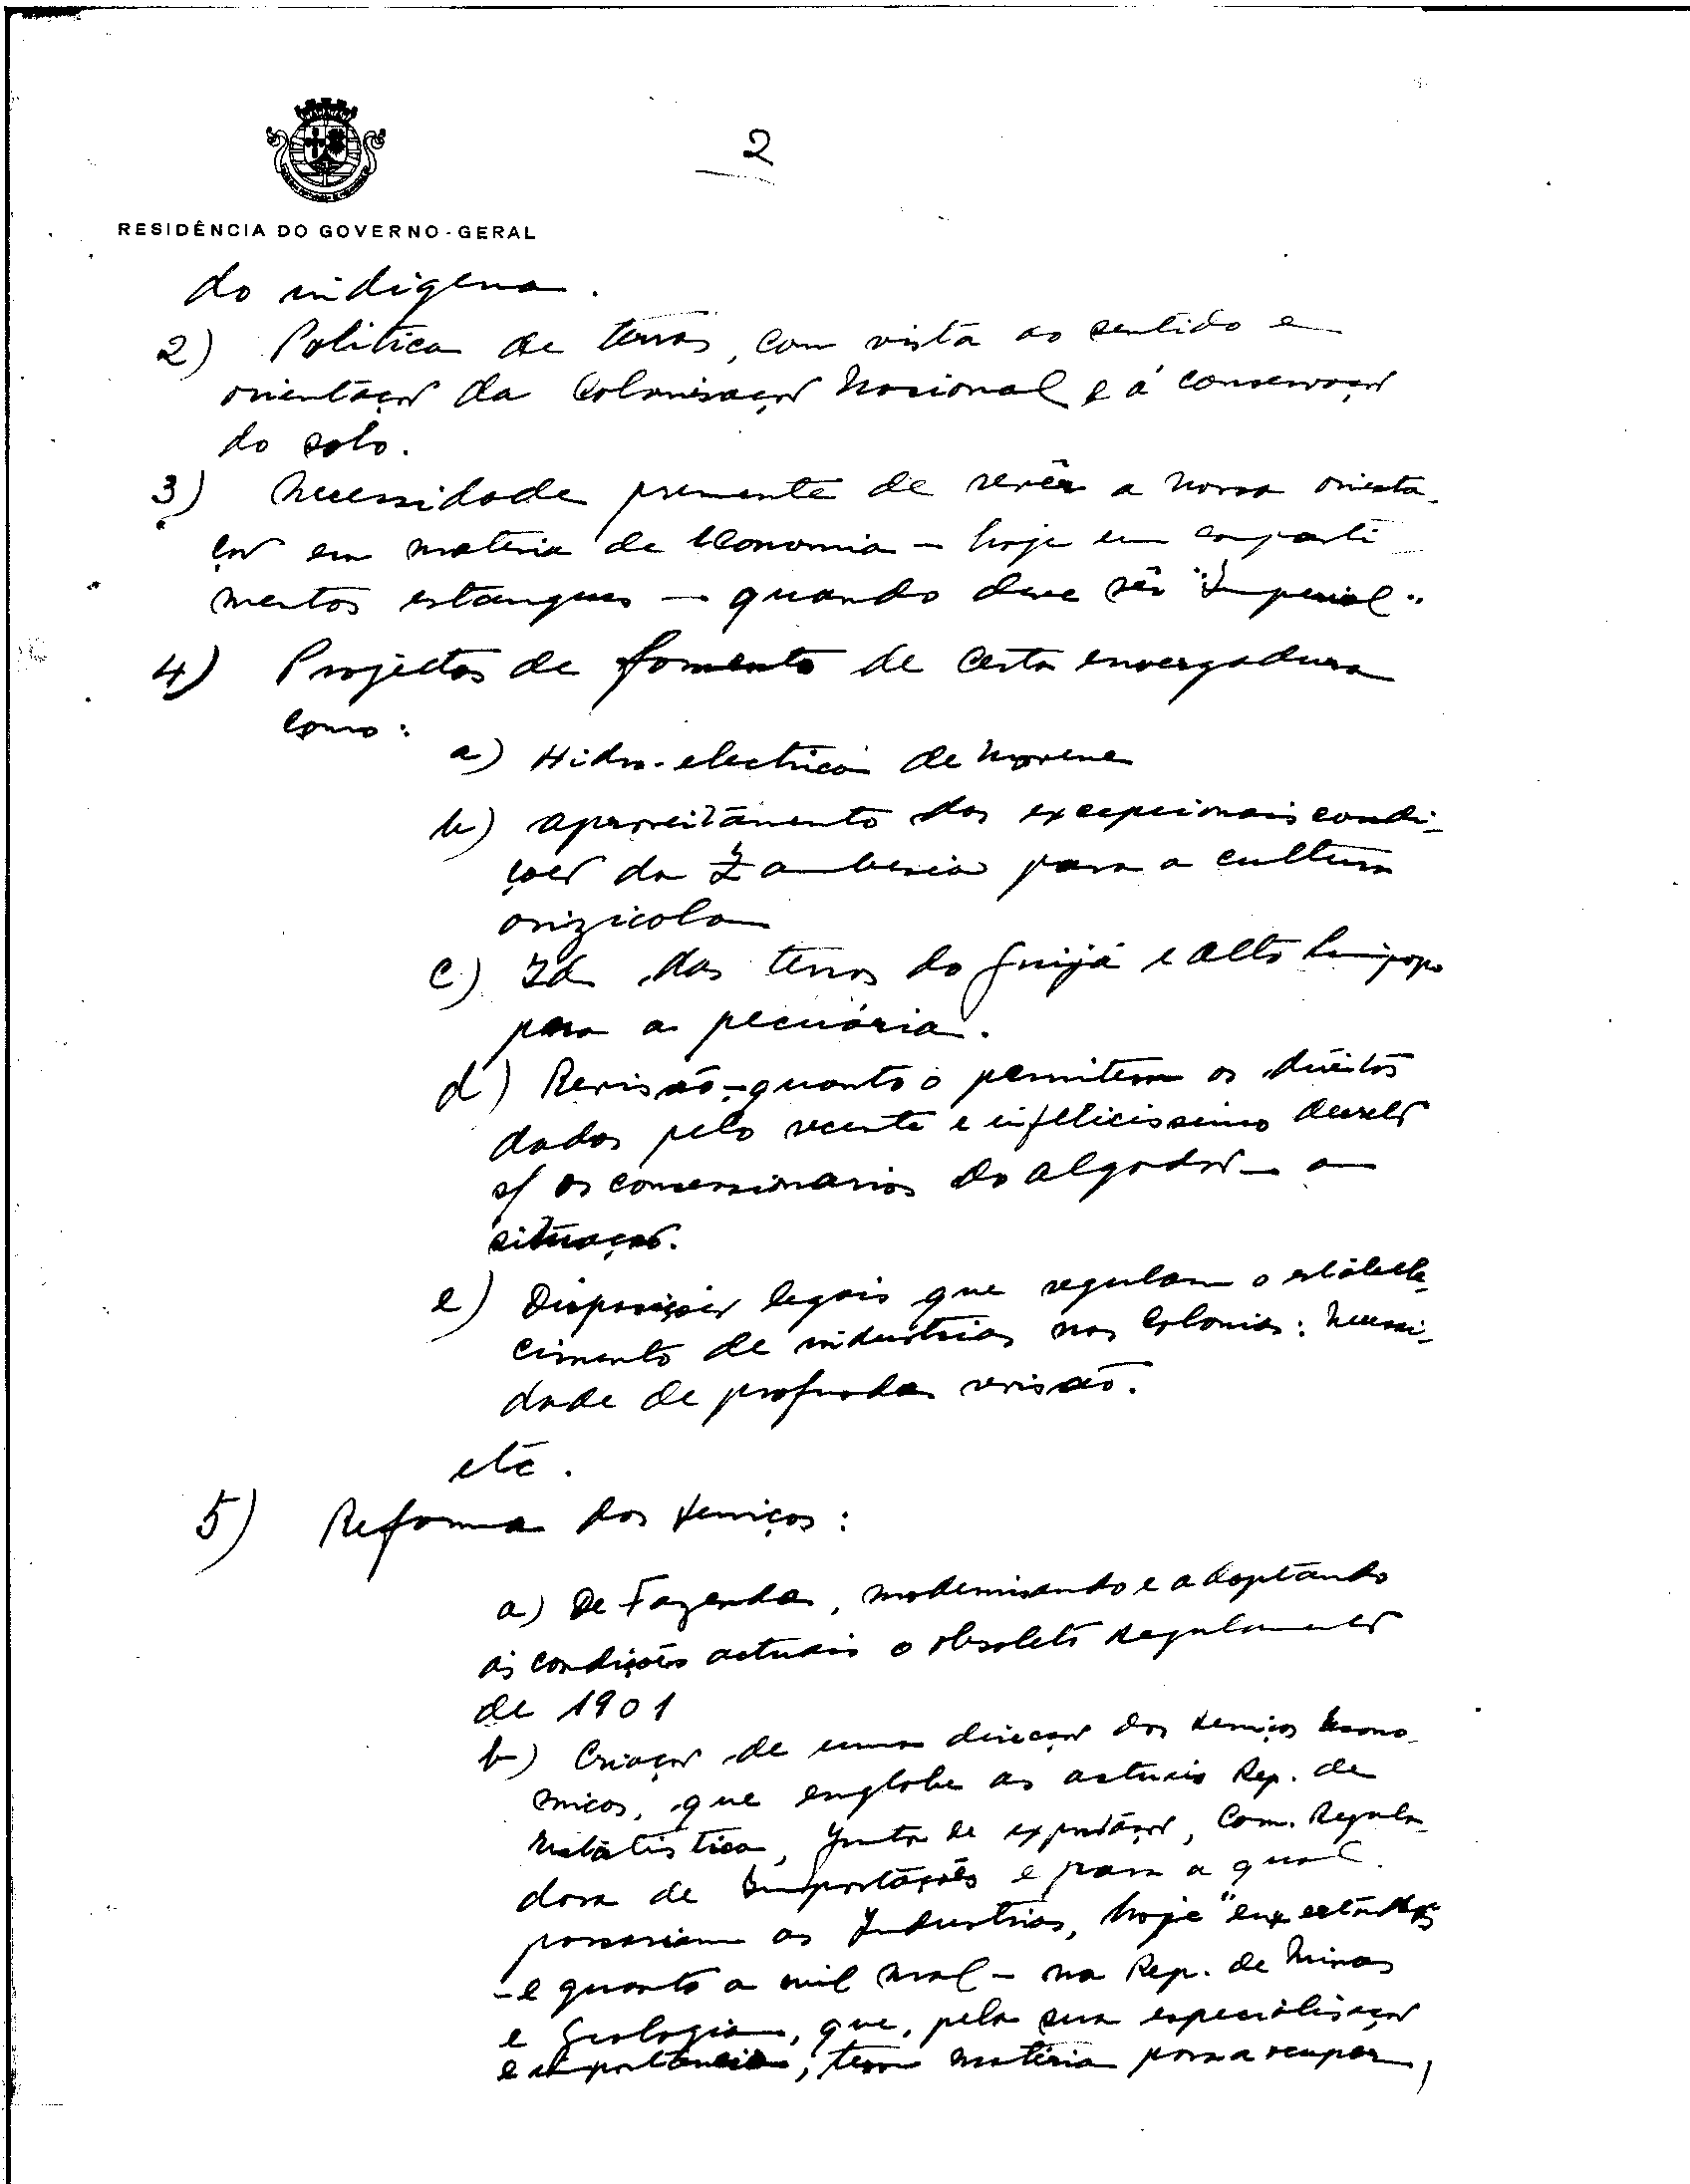 2
RESIDÊNCIA DO GOVERNO-GERAL
do indigena.
2) Politica de terras, com vista ao sentido e
orientação da Colonisação Nacional e á conservação
do solo.
3) Necessidade premente de revêr a nossa orienta-
ção em materia de Economia - hoje em comparti
mentos estanques - quando deve sêr "Imperial"
4) Projectos de fomento de certa envergadura
como:
a) Hidro-electrica de Movene
b) aproveitamento das excepcionais condi-
ções da Zambesia para a cultura
orizicola
c) Id. das terras do Guijá e Alto Limpopo
para a pecuária.
d) Revisão - quanto o permitem os direitos
dados pelo recente e infelicissimo decreto
s/ os concessionarios do algodão - a
situação.
e) Disposições legais que regulam o estabele-
cimento de industrias nas Colonias: Necessi-
dade de profunda revisão.
etc.
5) Reforma dos Serviços:
a) De Fazenda, modernisando e adoptando
ás condições actuais o obsoleto Regulamento
de 1901
b) Criação de uma direcção dos Serviços Econo-
micos, que englobe as actuais Rep. de
Estatistica, Junta de exportação, Com. Regula-
dora de Importações e para a qual
passariam as Industrias, hoje
- e quanto a mil mal - na Rep. de Minas
e Geologia, que, pela sua especialisação
e importancia, tem matéria para ocupar,